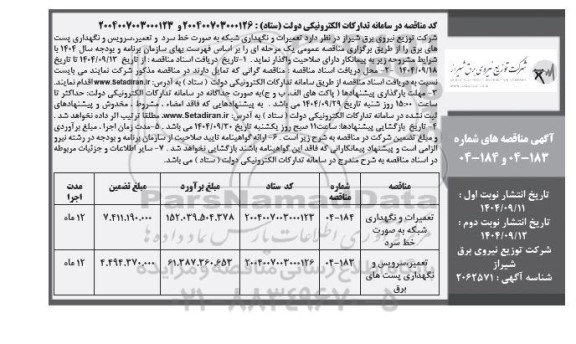 کد مناقصه در سامانه تدارکات الکترونیکی دولت (ستاد) : ۲۰۰۴۰۰۷۰۰۳۰۰۰۱۲۶ و ۲۰۰۴۰۰۷۰۰۳۰۰۰۱۲۳
شرکت توزیع نیروی برق شیراز در نظر دارد تعمیرات و نگهداری شبکه به صورت خط سرد و تعمیر،سرویس و نگهداری پست
های برق را از طریق برگزاری مناقصه عمومی یک مرحله ای را بر اساس فهرست بهای سازمان برنامه و بودجه سال ۱۴۰۴ با
شرایط مشروحه زیر به پیمانکار دارای صلاحیت واگذار نماید . ۱- تاریخ دریافت اسناد مناقصه : از تاریخ ۱۴۰۴/۰۹/۱۲ تا تاریخ
۱۴۰۴/۰۹/۱۸ ۲- محل دریافت اسناد مناقصه : مناقصه گرانی که تمایل دارند در مناقصه مذکور شرکت نمایند می بایست
نسبت به دریافت اسناد مناقصه از طریق سامانه تدارکات الکترونیکی دولت ( ستاد ) به آدرس: www.Setadiran.ir اقدام نمایند.
۳- مهلت بارگذاری پیشنهادها ( پاکت های الف، ب و ج)به صورت جداگانه در سامانه تدارکات الکترونیکی دولت: حداکثر تا
ساعت ۱۵:۰۰ روز شنبه تاریخ ۱۴۰۴/۰۹/۲۹ می باشد . به پیشنهادهایی که فاقد امضاء ، مشروط ، مخدوش و پیشنهادهای
ثبت نشده در سامانه تدارکات الکترونیکی دولت ( ستاد ) به آدرس: www.Setadiran.ir مطلقا ترتیب اثر داده نخواهد شد .
۴- تاریخ بازگشایی پیشنهادها: ساعت۱۱ صبح روز یکشنبه تاریخ ۱۴۰۴/۰۹/۳۰ می باشد . ۵-مدت زمان اجرا ، مبلغ برآوردی
و مبلغ تضمین شرکت در مناقصه به شرح زیر است . ۶- ارائه گواهینامه تایید صلاحیت از سازمان برنامه و بودجه در رشته نیرو
الزامی است و پیشنهاد پیمانکارانی که فاقد این گواهینامه باشند بازگشایی نخواهد شد . ۷- سایر اطلاعات و جزئیات مربوطه
در اسناد مناقصه به شرح مندرج در سامانه تدارکات الکترونیکی دولت ( ستاد ) می باشد.
مناقصه شماره مناقصه کد ستاد مبلغ برآورد مبلغ تضمین مدت اجرا
تعمیرات و نگهداری شبکه به صورت خط سرد ۰۴-۱۸۴ ۲۰۰۴۰۰۷۰۰۳۰۰۰۱۲۳ ۱۵۲.۰۳۹.۵۰۴.۳۷۸ ۷.۴۱۱.۱۹۰.۰۰۰ ۱۲ ماه
تعمیر،سرویس و نگهداری پست های برق ۰۴-۱۸۳ ۲۰۰۴۰۰۷۰۰۳۰۰۰۱۲۶ ۶۱.۳۸۷.۳۶۰.۶۵۳ ۴.۴۹۴.۳۷۰.۰۰۰ ۱۲ ماه
شرکت توزیع نیروی برق شیراز
آگهی مناقصه های شماره
۰۴-۱۸۳ و ۰۴-۱۸۴
تاریخ انتشار نوبت اول :
۱۴۰۴/۰۹/۱۱
تاریخ انتشار نوبت دوم :
۱۴۰۴/۰۹/۱۲
شرکت توزیع نیروی برق
شیراز
شناسه آگهی : ۲۰۶۲۵۷۱